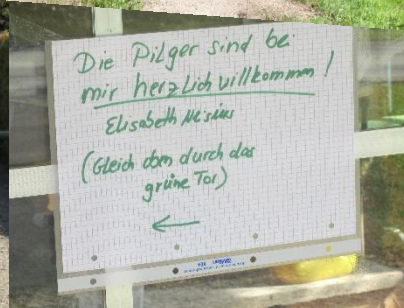 Die Pilger sind bei
mir herzlich willkommen!
Elisabeth
(Gleich oben durch das
grüne Tor)
←